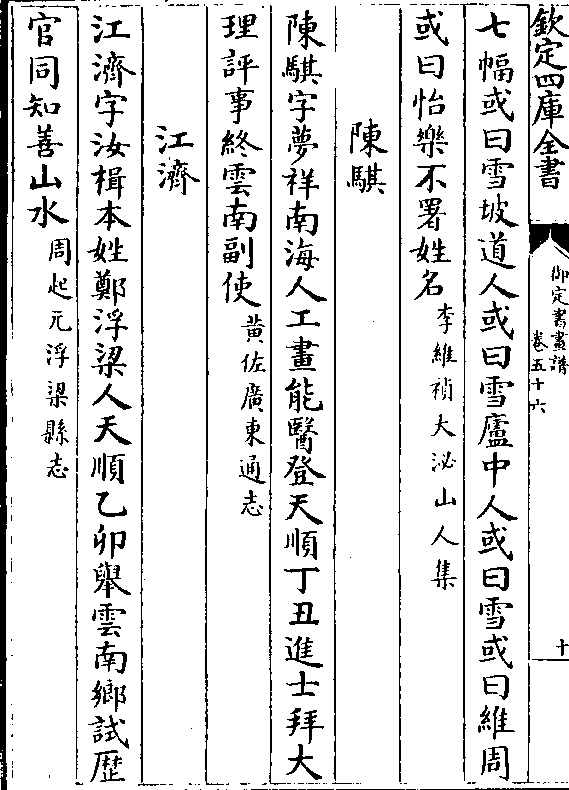 欽定四庫全書
御定書畫譜
卷五十六
十
七幅或曰雪坡道人或曰雪廬中人或曰雪或曰維周
或曰怡樂不署姓名李維禎大泌山人集
陳騏
陳騏字夢祥南海人工畫能醫登天順丁丑進士拜大
理評事終雲南副使黄佐廣東通志
江濟
江濟字汝楫本姓鄭浮梁人天順乙卯舉雲南鄉試歴
官同知善山水周起元浮梁縣志